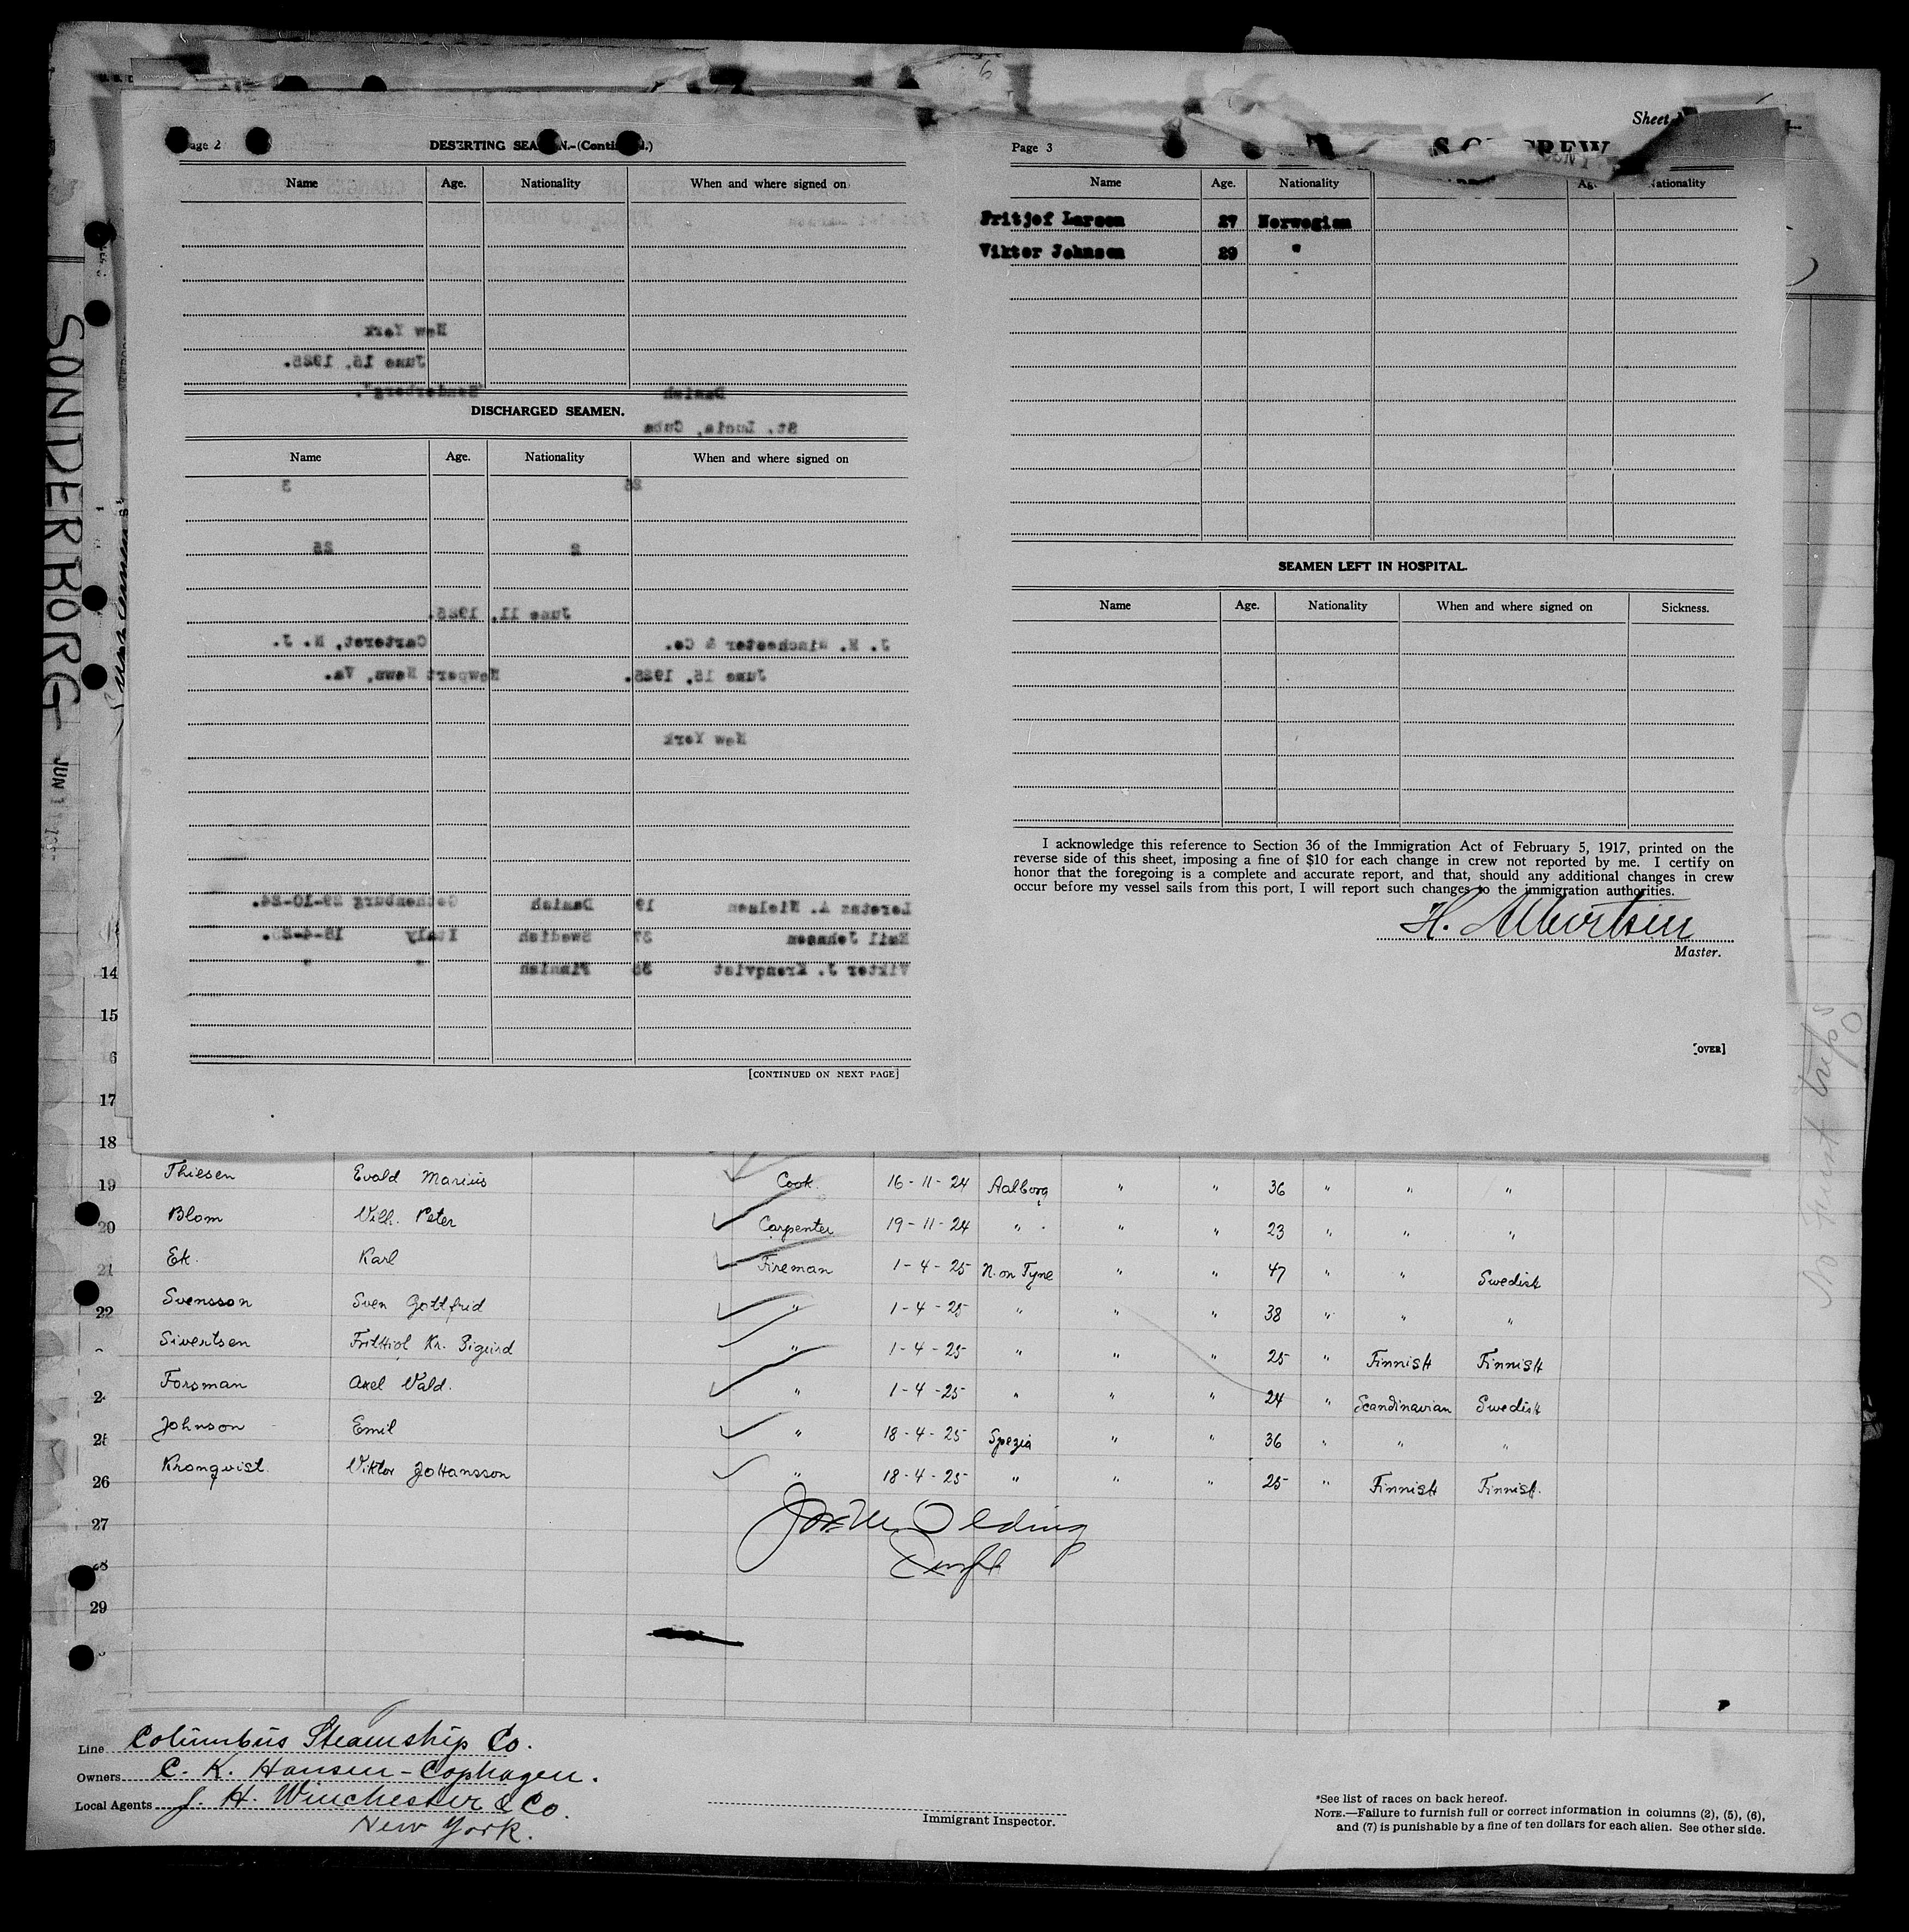 6
Sheet
Page 2
DESERTING SEAMEN.-(Continued.)
Name Age. Nationality When and where signed on
New York
June 15, 1925.
"Sonderborg". Danish
DISCHARGED SEAMEN.
St. Lucia, Cuba
Name Age. Nationality When and where signed on
3 26
25 2
June 11, 1925.
J. H. Winchester & Co. Carteret, N. J.
June 15, 1925. Newport News, Va.
New York
Lorentz A. Nielsen 19 Danish Gothenburg 29-10-24.
Emil Johnson 37 Swedish Italy 18-4-25.
Viktor J. Kronqvist 35 Finnish " "
[CONTINUED ON NEXT PAGE]
Page 3
CREW
Name Age. Nationality Age. Nationality
Fritjof Larsen 27 Norwegian
Viktor Johnsen 29 "
SEAMEN LEFT IN HOSPITAL.
Name Age. Nationality When and where signed on Sickness.
I acknowledge this reference to Section 36 of the Immigration Act of February 5, 1917, printed on the
reverse side of this sheet, imposing a fine of $10 for each change in crew not reported by me. I certify on
honor that the foregoing is a complete and accurate report, and that, should any additional changes in crew
occur before my vessel sails from this port, I will report such changes to the immigration authorities.
H. Albertsen
Master.
[OVER]
SONDERBORG
JUN 1
14
15
16
17
18
19 Thiesen Evald Marius Cook. 16-11-24 Aalborg " " 36 " " "
20 Blom Vilh. Peter Carpenter 19-11-24 " " " 23 " " "
21 Ek. Karl Fireman 1-4-25 N. on Tyne " " 47 " " Swedish
22 Svensson Sven Gottfrid " 1-4-25 " " " 38 " " "
Sivertsen Frithiol Kr. Sigurd " 1-4-25 " " " 25 " Finnish Finnish
2 Forsman Axel Vald. " 1-4-25 " " " 24 " Scandinavian Swedish
25 Johnson Emil " 18-4-25 Spezia " " 36 " " "
26 Kronqvist. Viktor Johansson " 18-4-25 " " " 25 " Finnish Finnish.
27
28
29
No First trips
Line Columbus Steamship Co.
Owners C. K. Hansen - Cophagen.
Local Agents J. H. Winchester & Co.
New York.
Immigrant Inspector.
*See list of races on back hereof.
NOTE.—Failure to furnish full or correct information in columns (2), (5), (6),
and (7) is punishable by a fine of ten dollars for each alien. See other side.